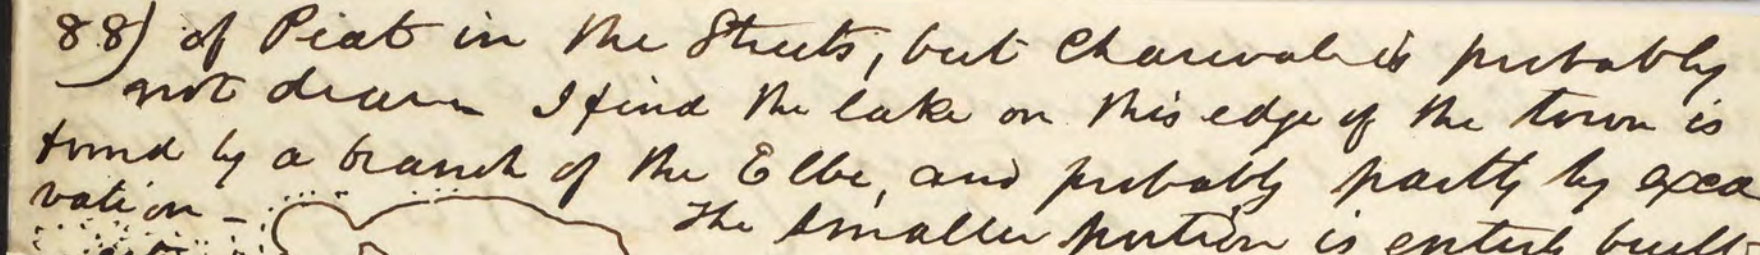 88) of Peat in the Streets, but Charcoal is probably
not dear. I find the lake on this edge of the town is
formed by a branch of the Elbe, and probably partly by exca
vation –
The smaller portion is entirely built